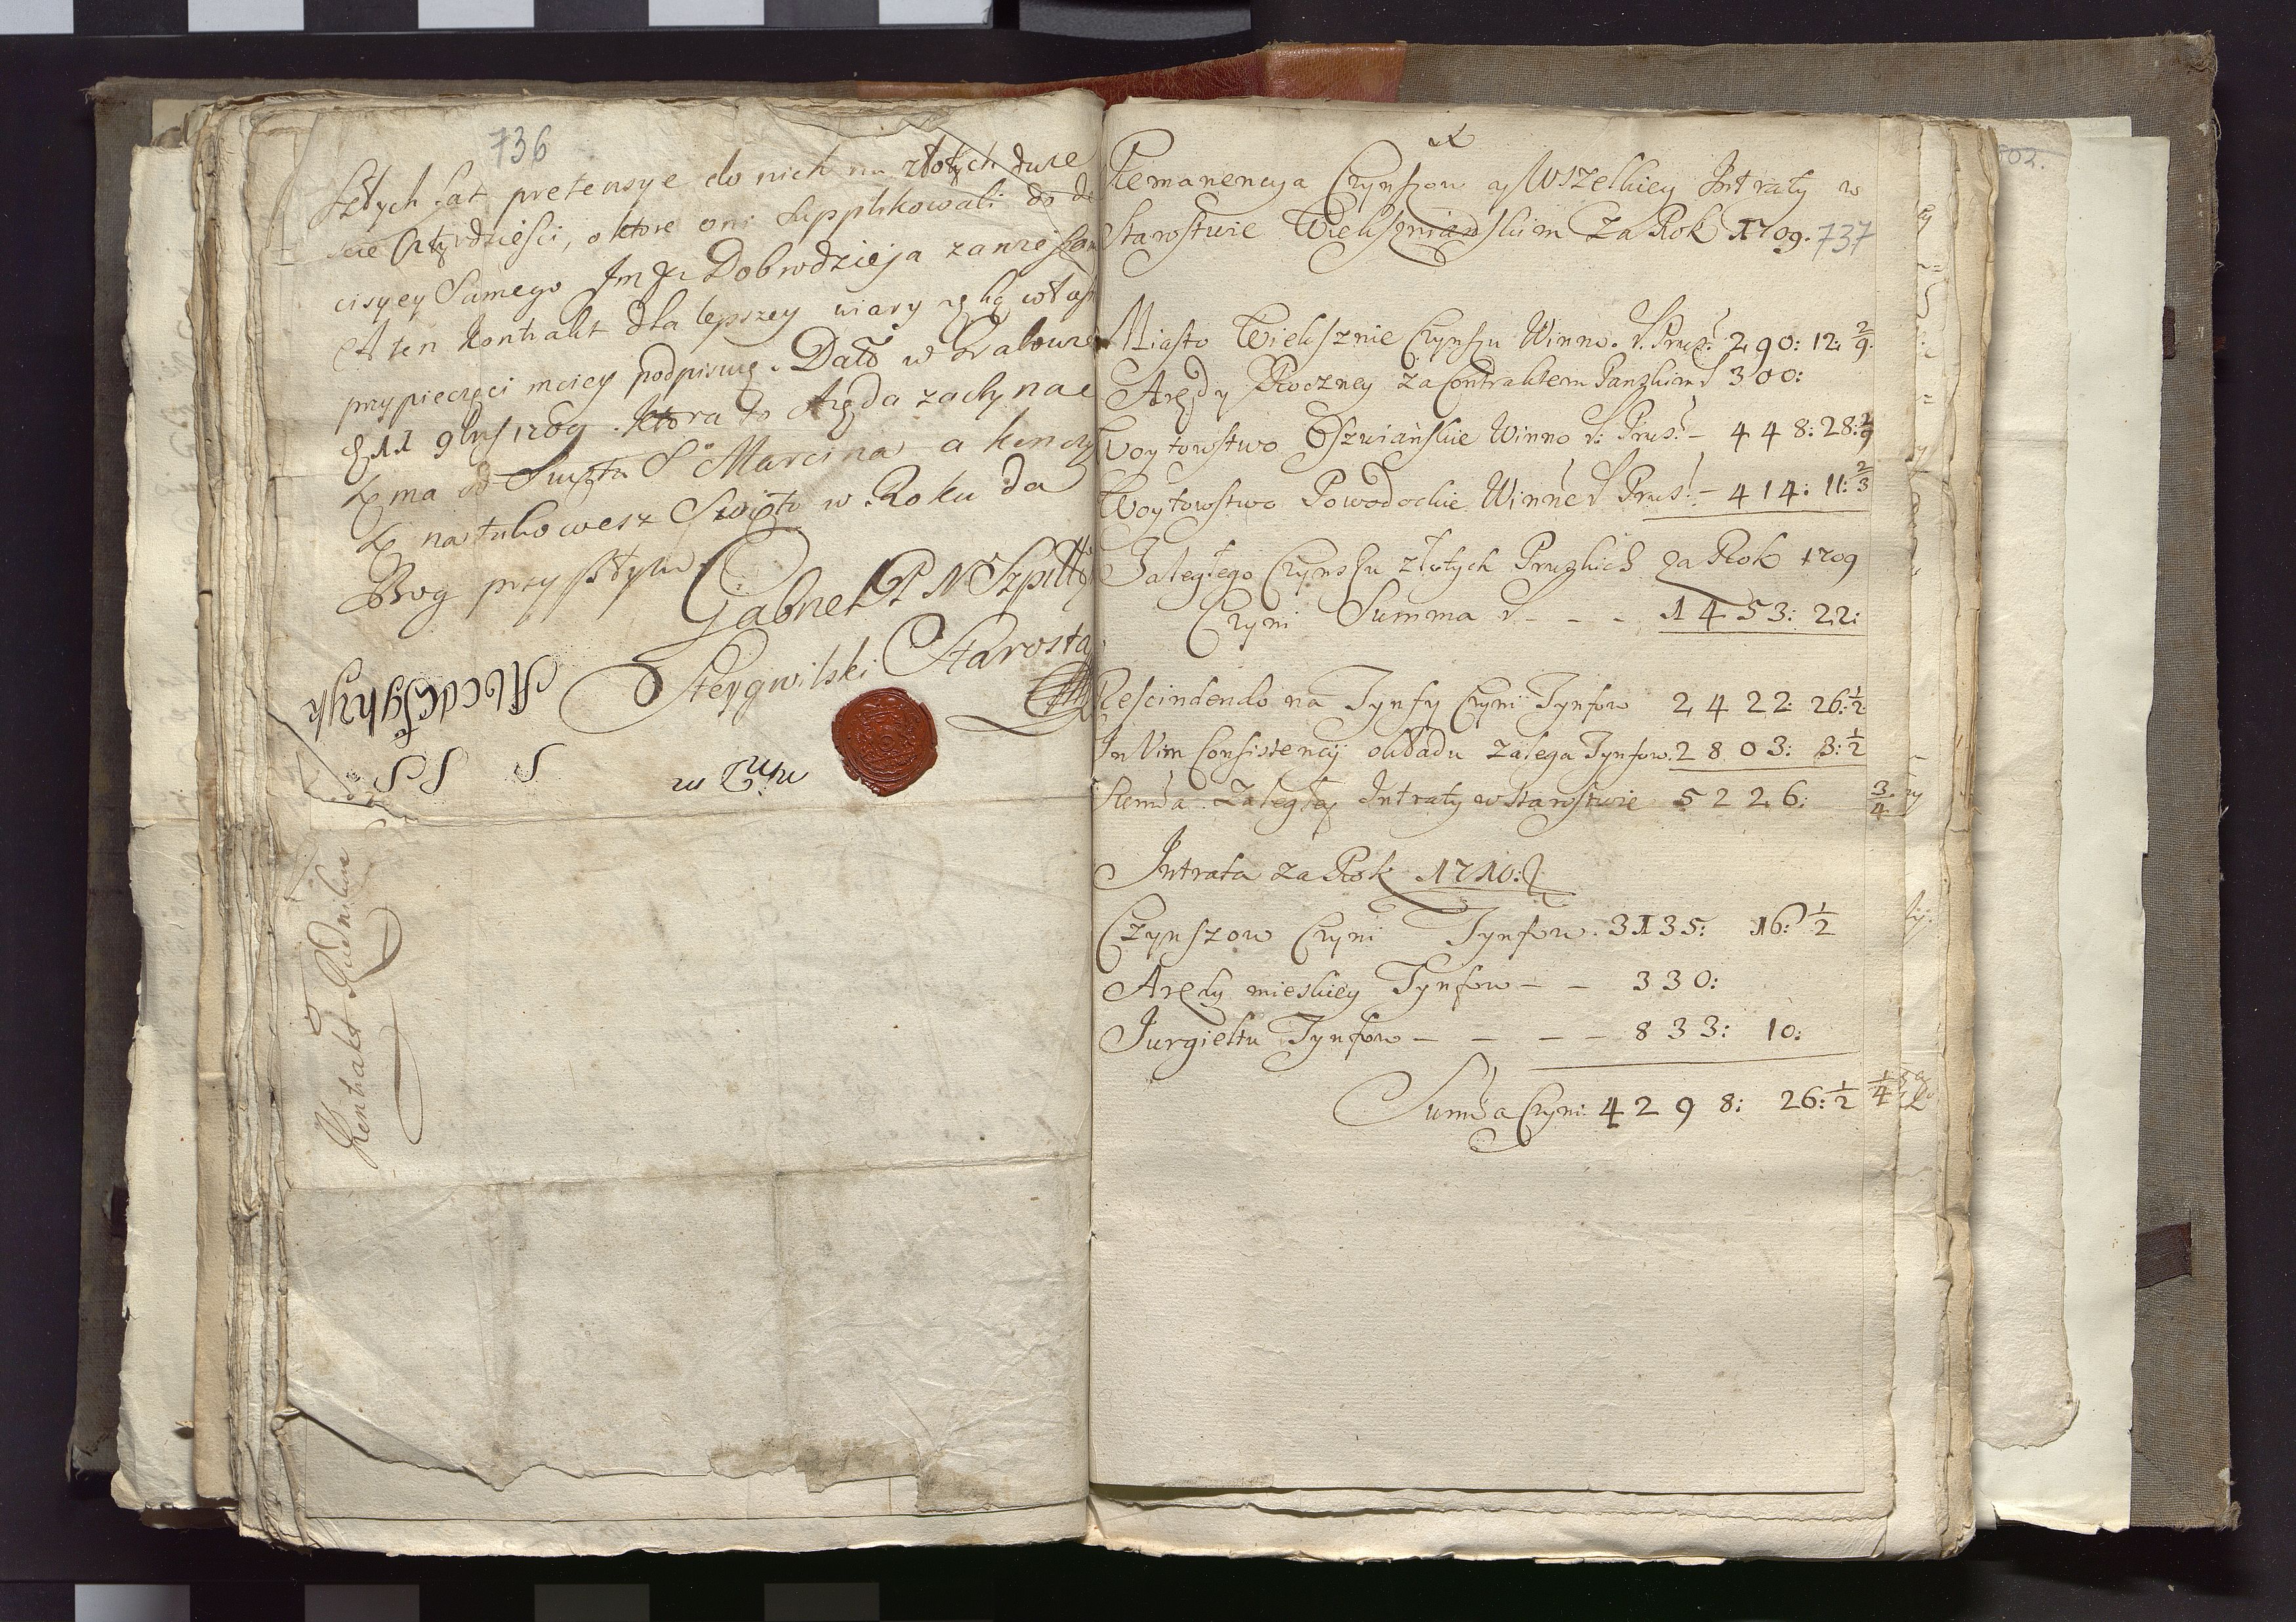 736
szłych lat pretensye do nich na złotych dwie
scie Czterdziesci, o ktore oni supplikowali do de
cisyey Samego Im Pa Dobrodzieja
A ten kontrakt dla lepszey wiary ręką włas
przy pieczęci moiey podpisuię. Datt w
d 11 9bris 1709. ktora to Aręda zaczyna
ę ma od Święta S Marcina a konczy
Bog przyszłym
w Roku da
Gabriel
Starosta
mp
Kontrakt
737
Remanencya Czynszow y Wszelkiey Intraty w
Starostwie Wieksznianskim Za Rok 1709.
Miasto Wieksznie Czynszu Winno. f. Prus: 290: 12: 2/9.
Arędy Roczney za Contraktem Panskim f 300:
Woytowstwo Winno f: Prus: – 448: 28: 2/9
Woytowstwo Powodockie Winne f Prus: – 414: 11: 2/3
Zaległego Czynszu złotych Pruskich Za Rok 1709
Czyni Summa f. - - - 1453: 22:
Rescindendo na Tynfy Czyni Tynfow 2422: 26: 1/2
In Vim Consistencij okładu zalega Tynfow. 2803: 3: 1/2
Remĩa Zaległey Intraty w Starostwie 5226: 3/4
Intrata za Rok 1710:
Czynszow Czyni Tynfow. 3135: 16: 1/2
Arędy mieskiey Tynfow – – 330:
Jurgieltu Tynfow – – – – 833: 10:
Summa Czyni 4298: 26: 1/2 1/4
802.